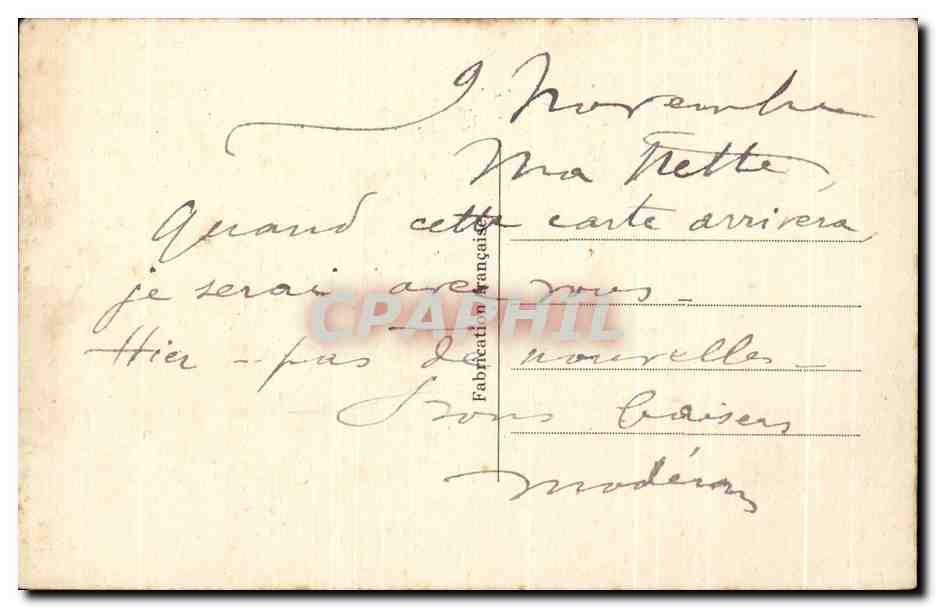 9 Novembre
Ma Nette,
Quand cette carte arrivera,
je serai avec vous -
Hier - pas de nouvelles -
Bons baisers
Fabrication Française
CPAPHIL